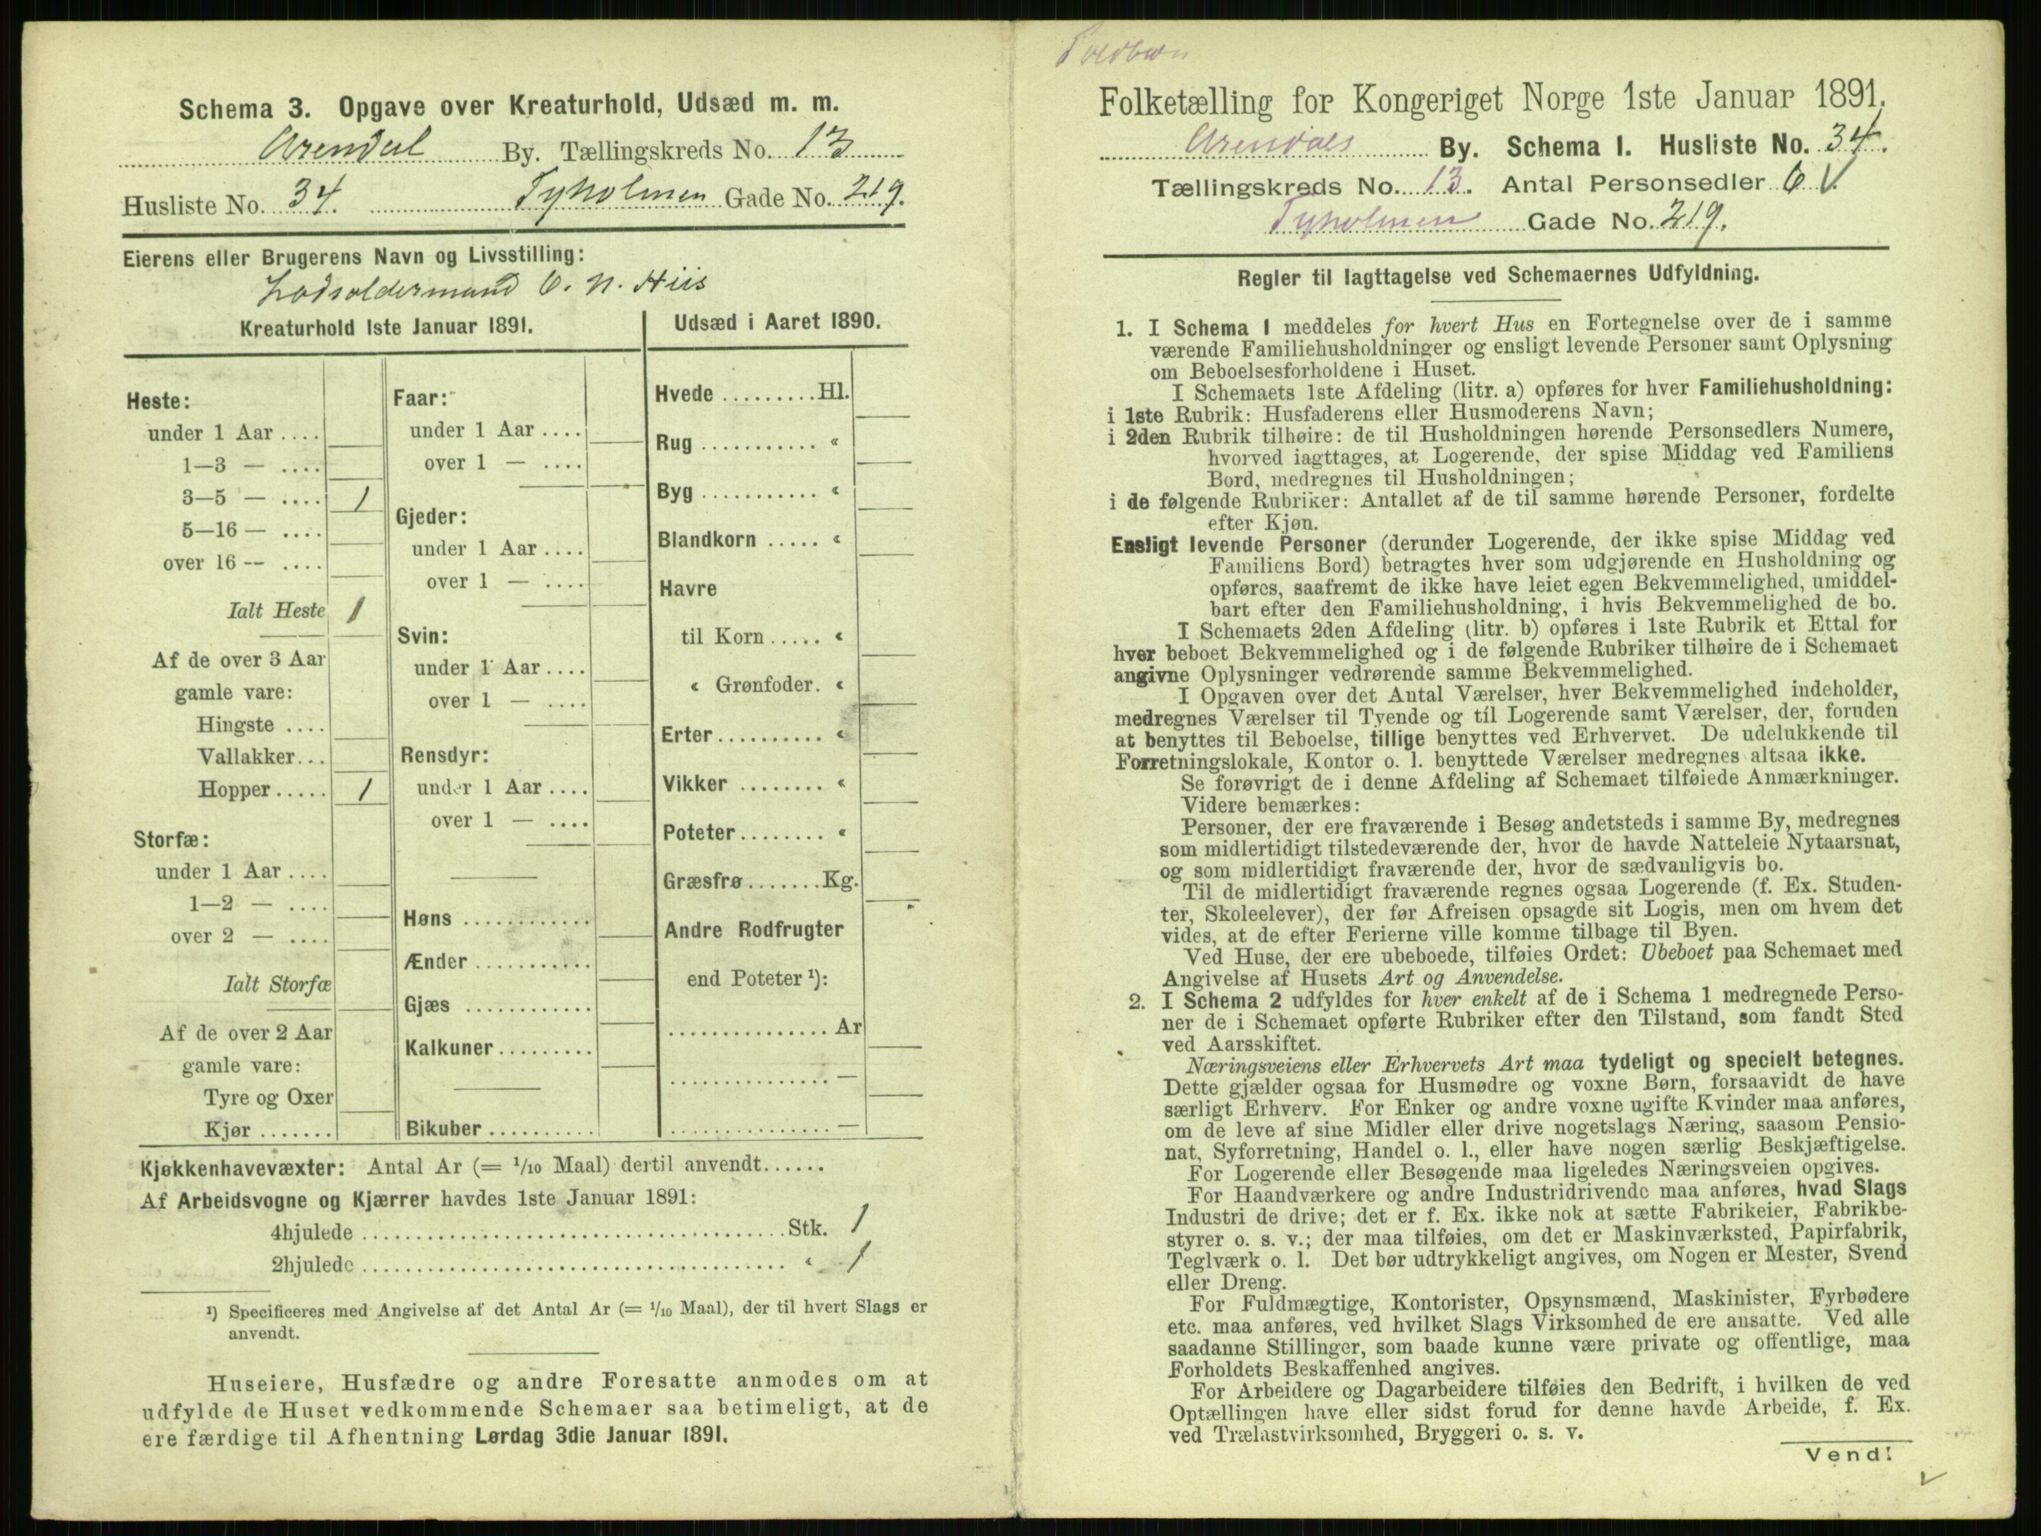 Schema 3. Opgave over Kreaturhold, Udsæd m. m.
Arendal By. Tællingskreds No. 13
Husliste No. 34. Tyholmen Gade No. 219.
Eierens eller Brugerens Navn og Livsstilling:
Lodsoldermand C. N. Hiis
Kreaturhold 1ste Januar 1891.
Heste:
under 1 Aar ....
1—3 — ....
3—5 — .... 1
5—16 — ....
over 16 — ....
Ialt Heste 1
Af de over 3 Aar
gamle vare:
Hingste ....
Vallakker...
Hopper ..... 1
Storfæ:
under 1 Aar ....
1—2 — ....
over 2 — ....
Ialt Storfæ
Af de over 2 Aar
gamle vare:
Tyre og Oxer
Kjør .......
Faar:
under 1 Aar ....
over 1 — ....
Gjeder:
under 1 Aar ....
over 1 — ....
Svin:
under 1 Aar ....
over 1 — ....
Rensdyr:
under 1 Aar ....
over 1 — ....
Høns ............
Ænder ...........
Gjæs ............
Kalkuner.........
Bikuber ..........
Udsæd i Aaret 1890.
Hvede .........Hl.
Rug ........... «
Byg ........... «
Blandkorn ..... «
Havre
til Korn ..... «
« Grønfoder. «
Erter.......... «
Vikker ........ «
Poteter........ «
Græsfrø .......Kg.
Andre Rodfrugter
end Poteter ¹):
............... Ar
............... —
............... —
Kjøkkenhavevæxter: Antal Ar (= 1/10 Maal) dertil anvendt......
Af Arbeidsvogne og Kjærrer havdes 1ste Januar 1891:
4hjulede ........................................Stk. 1
2hjulede ........................................ « 1
¹) Specificeres med Angivelse af det Antal Ar (= 1/10 Maal), der til hvert Slags er
anvendt.
Huseiere, Husfædre og andre Foresatte anmodes om at
udfylde de Huset vedkommende Schemaer saa betimeligt, at de
ere færdige til Afhentning Lørdag 3die Januar 1891.
Folketælling for Kongeriget Norge 1ste Januar 1891.
Arendals By. Schema 1. Husliste No. 34.
Tællingskreds No. 13. Antal Personsedler 6 √.
Tyholmen Gade No. 219.
Regler til Iagttagelse ved Schemaernes Udfyldning.
1. I Schema 1 meddeles for hvert Hus en Fortegnelse over de i samme
værende Familiehusholdninger og ensligt levende Personer samt Oplysning
om Beboelsesforholdene i Huset.
I Schemaets 1ste Afdeling (litr. a) opføres for hver Familiehusholdning:
i 1ste Rubrik: Husfaderens eller Husmoderens Navn;
i 2den Rubrik tilhøire: de til Husholdningen hørende Personsedlers Numere,
hvorved iagttages, at Logerende, der spise Middag ved Familiens
Bord, medregnes til Husholdningen;
i de følgende Rubriker: Antallet af de til samme hørende Personer, fordelte
efter Kjøn.
Ensligt levende Personer (derunder Logerende, der ikke spise Middag ved
Familiens Bord) betragtes hver som udgjørende en Husholdning og
opføres, saafremt de ikke have leiet egen Bekvemmelighed, umiddel-
bart efter den Familiehusholdning, i hvis Bekvemmelighed de bo.
I Schemaets 2den Afdeling (litr. b) opføres i 1ste Rubrik et Ettal for
hver beboet Bekvemmelighed og i de følgende Rubriker tilhøire de i Schemaet
angivne Oplysninger vedrørende samme Bekvemmelighed.
I Opgaven over det Antal Værelser, hver Bekvemmelighed indeholder,
medregnes Værelser til Tyende og til Logerende samt Værelser, der, foruden
at benyttes til Beboelse, tillige benyttes ved Erhvervet. De udelukkende til
Forretningslokale, Kontor o. l. benyttede Værelser medregnes altsaa ikke.
Se forøvrigt de i denne Afdeling af Schemaet tilføiede Anmærkninger.
Videre bemærkes:
Personer, der ere fraværende i Besøg andetsteds i samme By, medregnes
som midlertidigt tilstedeværende der, hvor de havde Natteleie Nytaarsnat,
og som midlertidigt fraværende der, hvor de sædvanligvis bo.
Til de midlertidigt fraværende regnes ogsaa Logerende (f. Ex. Studen-
ter, Skoleelever), der før Afreisen opsagde sit Logis, men om hvem det
vides, at de efter Ferierne ville komme tilbage til Byen.
Ved Huse, der ere ubeboede, tilføies Ordet: Ubeboet paa Schemaet med
Angivelse af Husets Art og Anvendelse.
2. I Schema 2 udfyldes for hver enkelt af de i Schema 1 medregnede Perso-
ner de i Schemaet opførte Rubriker efter den Tilstand, som fandt Sted
ved Aarsskiftet.
Næringsveiens eller Erhvervets Art maa tydeligt og specielt betegnes.
Dette gjælder ogsaa for Husmødre og voxne Børn, forsaavidt de have
særligt Erhverv. For Enker og andre voxne ugifte Kvinder maa anføres,
om de leve af sine Midler eller drive nogetslags Næring, saasom Pensio-
nat, Syforretning, Handel o. l., eller have nogen særlig Beskjæftigelse.
For Logerende eller Besøgende maa ligeledes Næringsveien opgives.
For Haandværkere og andre Industridrivende maa anføres, hvad Slags
Industri de drive; det er f. Ex. ikke nok at sætte Fabrikeier, Fabrikbe-
styrer o. s. v.; der maa tilføies, om det er Maskinværksted, Papirfabrik,
Teglværk o. l. Det bør udtrykkeligt angives, om Nogen er Mester, Svend
eller Dreng.
For Fuldmægtige, Kontorister, Opsynsmænd, Maskinister, Fyrbødere
etc. maa anføres, ved hvilket Slags Virksomhed de ere ansatte. Ved alle
saadanne Stillinger, som baade kunne være private og offentlige, maa
Forholdets Beskaffenhed angives.
For Arbeidere og Dagarbeidere tilføies den Bedrift, i hvilken de ved
Optællingen have eller sidst forud for denne havde Arbeide, f. Ex.
ved Trælastvirksomhed, Bryggeri o. s. v.
Vend!